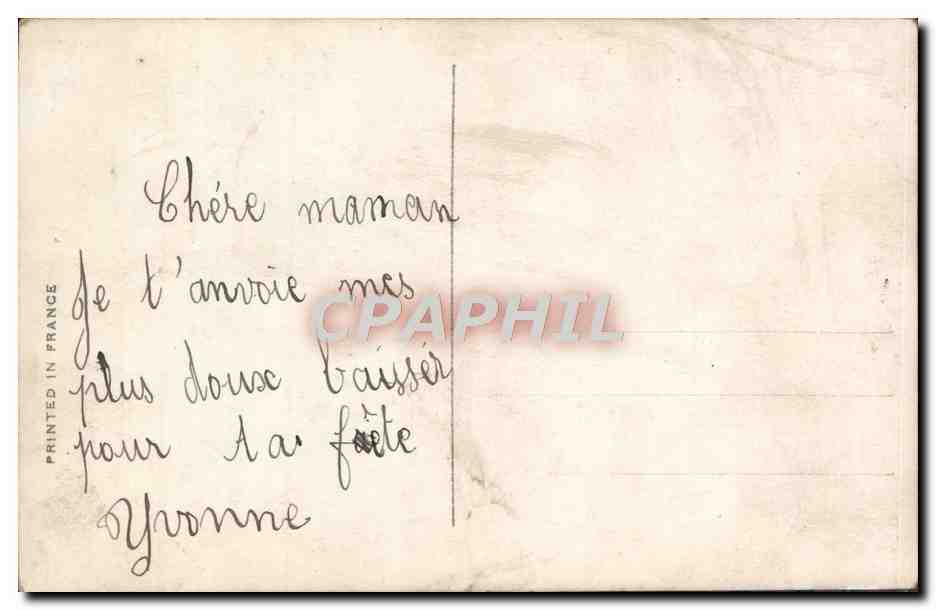 Chére maman
Je t'anvoie mes
plus doux baissér
pour ta fête
Yvonne
PRINTED IN FRANCE
CPAPHIL